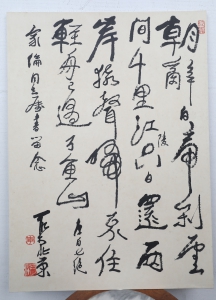 朝辭白帝彩雲
間千里江陵一日還兩
岸猿聲啼不住
輕舟已過萬重山
同志屬書留念